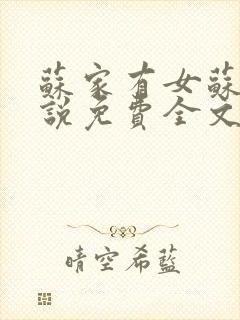 蘇家有女蘇
說免費全文
晴空希藍